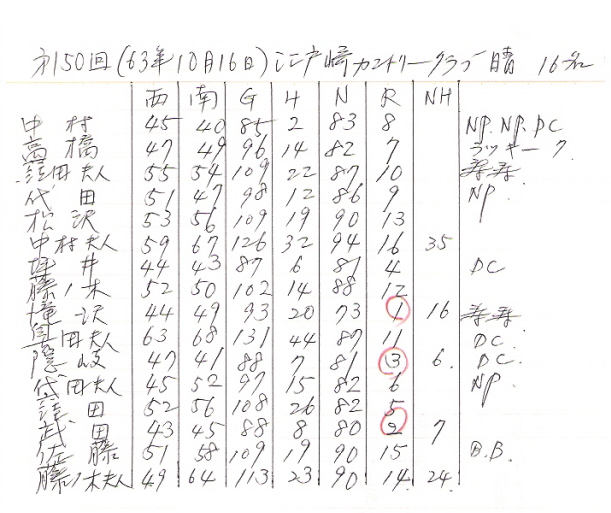 第150回(63年10月16日)江戸崎カントリークラブ 晴 16名
西 南 G H N R NH
中村 45 40 85 2 83 8 NP.NP.DC
高橋 47 49 96 14 82 7 ラッキー7.
田夫人 55 54 109 22 87 10
代田 51 47 98 12 86 9 NP.
松沢 53 56 109 19 90 13
中村夫人 59 67 126 32 94 16 35
坪井 44 43 87 6 81 4 DC
藤ノ木 52 50 102 14 88 12
沢 44 49 93 20 73 1 16
田夫人 63 68 131 44 87 11 DC.
隠岐 47 41 88 7 81 3 6. DC.
代田夫人 45 52 97 15 82 6 NP.
田 52 56 108 26 82 5
武田 43 45 88 8 80 2 7
佐藤 51 58 109 19 90 15 B.B.
藤ノ木夫人 49 64 113 23 90 14. 24.